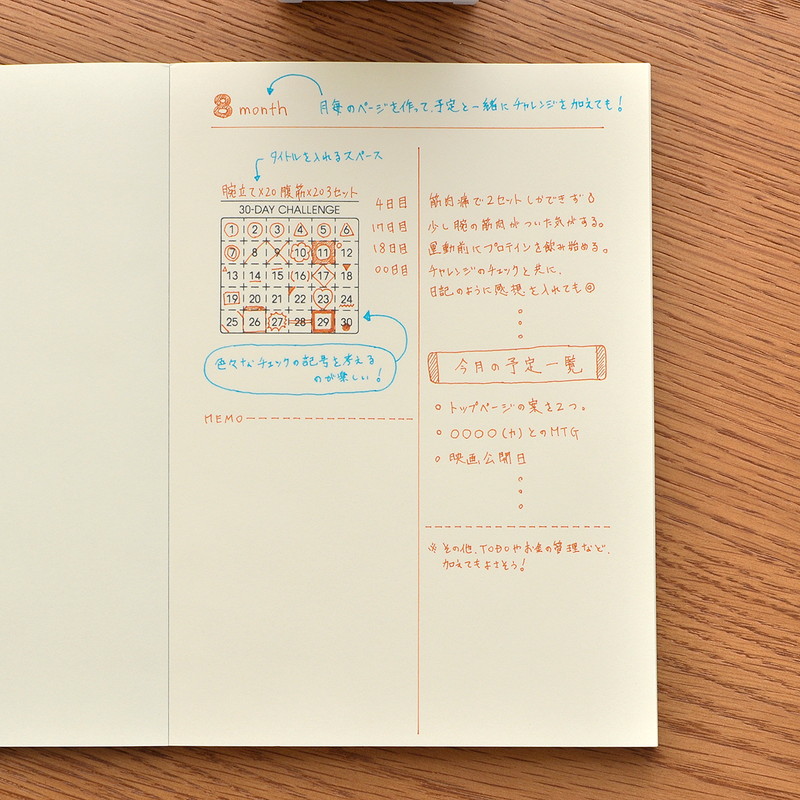 8 month
月毎のページを作って、予定と一緒にチャレンジを加えても!
タイトルを入れるスペース
腕立て×20 腹筋×20 3セット
30-DAY CHALLENGE
1 2 3 4 5 6
7 8 9 10 11 12
13 14 15 16 17 18
19 20 21 22 23 24
25 26 27 28 29 30
色々なチェックの記号を考える
のが楽しい!
MEMO
4日目 筋肉痛で2セットしかできず
17日目 少し腕の筋肉がついた気がする。
18日目 運動前にプロテインを飲み始める。
〇〇日目 チャレンジのチェックと共に、
日記のように感想を入れても
今月の予定一覧
トップページの案を2つ。
〇〇〇〇(カ)とのMTG
映画公開日
※その他、TODOやお金の管理など、
加えてもよさそう!